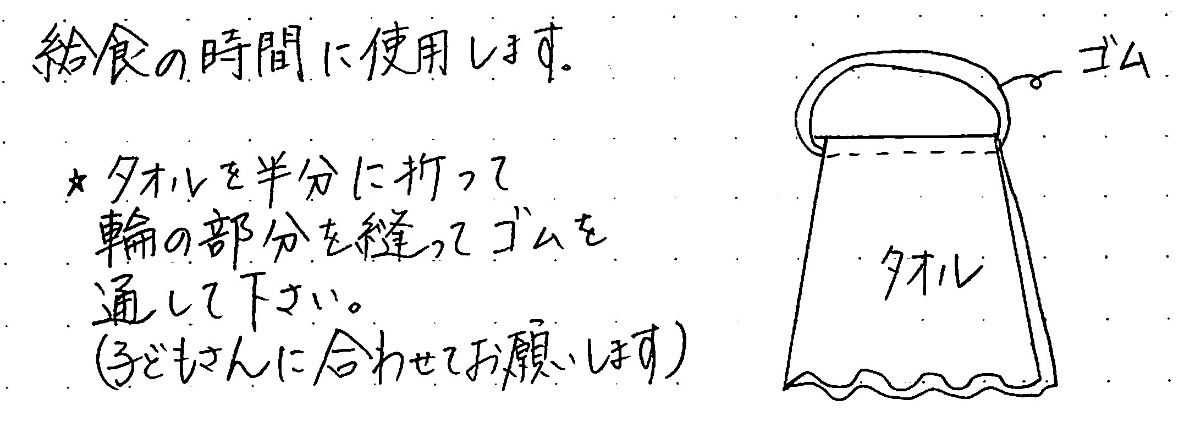 給食の時間に使用します。
☆タオルを半分に折って
輪の部分を縫ってゴムを
通して下さい。
(子どもさんに合わせてお願いします)
ゴム
タオル